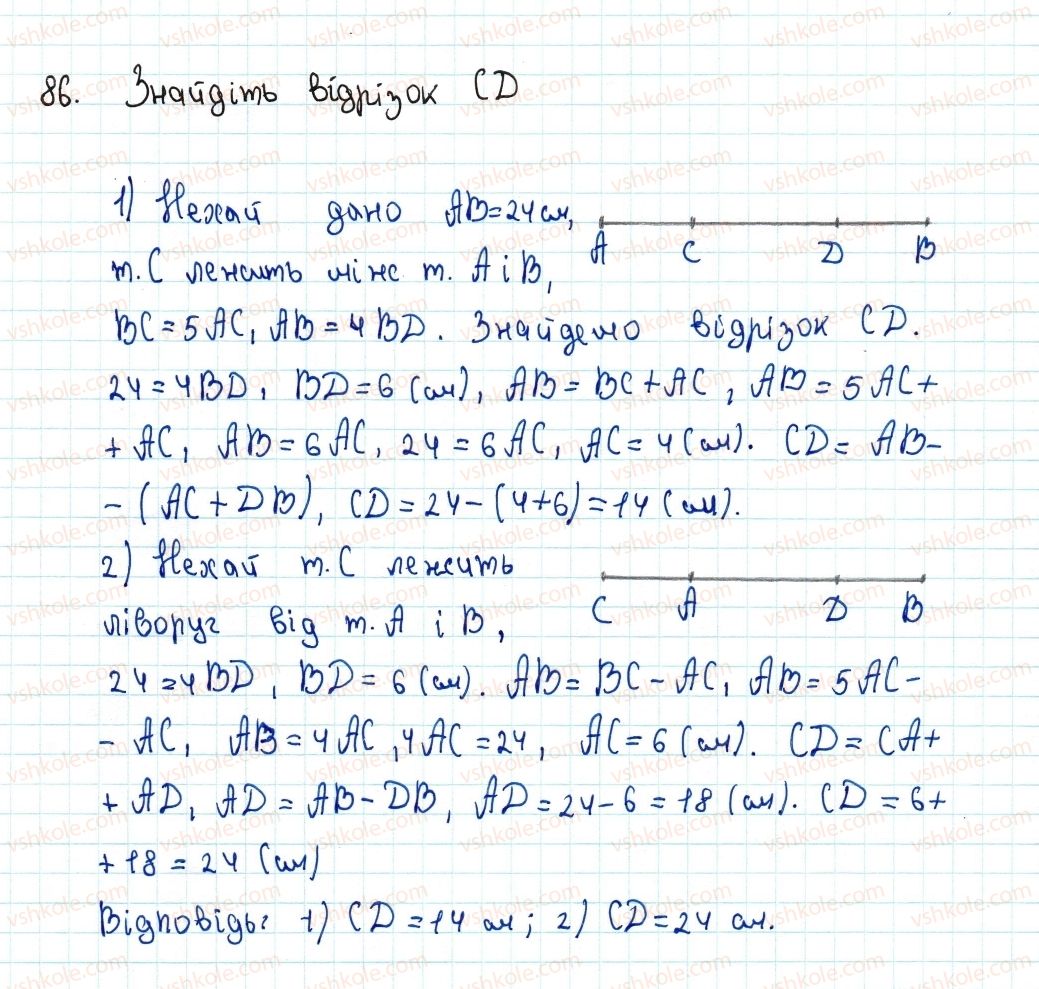 86. Знайдіть відрізок CD
1) Нехай дано AB=24см,
A C D B
т. C лежить між т. A і B,
BC = 5AC, AB = 4BD. Знайдемо відрізок CD.
24 = 4BD, BD = 6 (см), AB = BC + AC, AB = 5AC +
+ AC, AB = 6AC, 24 = 6AC, AC = 4 (см). CD = AB -
- (AC + DB), CD = 24 - (4+6) = 14 (см).
2) Нехай т. C лежить
C A D B
ліворуч від т. A і B,
24 = 4BD, BD = 6 (см). AB = BC - AC, AB = 5AC -
- AC, AB = 4AC, 4AC = 24, AC = 6 (см). CD = CA +
+ AD, AD = AB - DB, AD = 24 - 6 = 18 (см). CD = 6 +
+ 18 = 24 (см)
Відповідь: 1) CD = 14 см; 2) CD = 24 см.